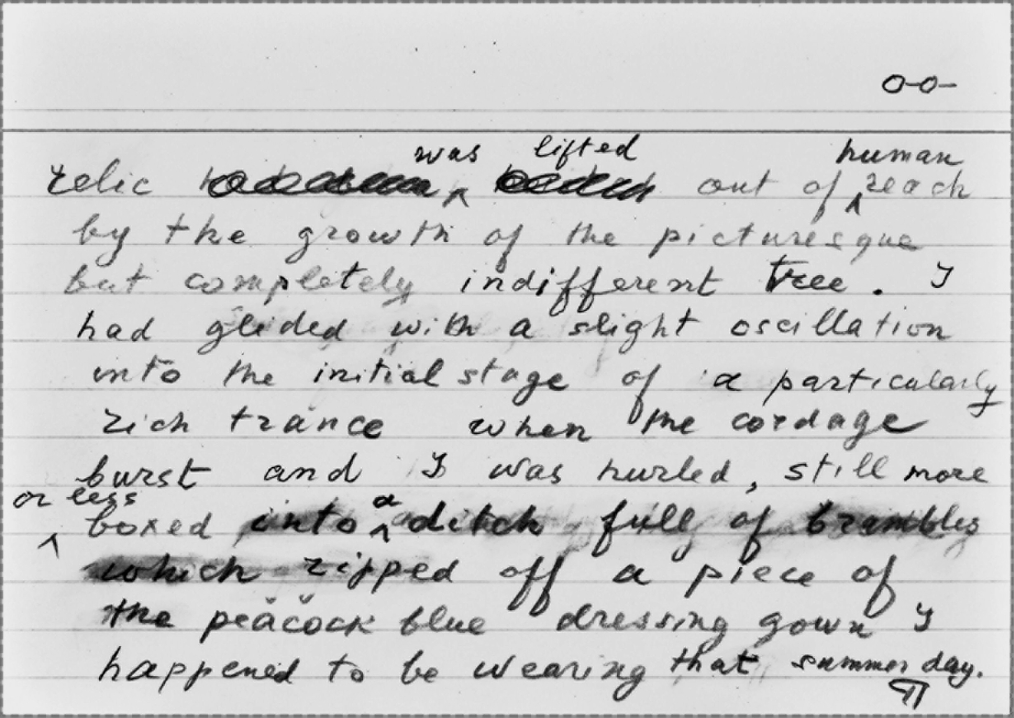 relic was lifted out of human reach
by the growth of the picturesque
but completely indifferent tree. I
had glided with a slight oscillation
into the initial stage of a particularly
rich trance when the cordage
burst and I was hurled, still more
or less boxed into a ditch full of brambles
which ripped off a piece of
the peacock blue dressing gown I
happened to be wearing that summer day.